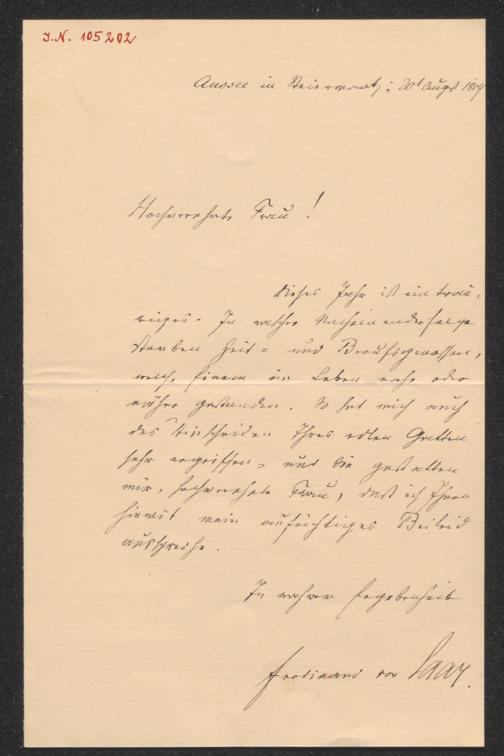 I.N. 105202
Aussee in Steiermark, 20t Augst
Hochverehrte Frau!
Dieses Jahr ist ein trau-
riges. In rascher Nacheinanderfolge
sterben Zeit- und Berufsgenossen,
welche Einem im Leben nahe oder
näher gestanden. So hat mich auch
das Hinscheiden Ihres edlen Gatten
sehr ergriffen, und Sie gestatten
mir, hochverehrte Frau, daß ich Ihnen
hiemit mein aufrichtiges Beileid
ausspreche.
In wahrer Ergebenheit
Ferdinand von Saar.